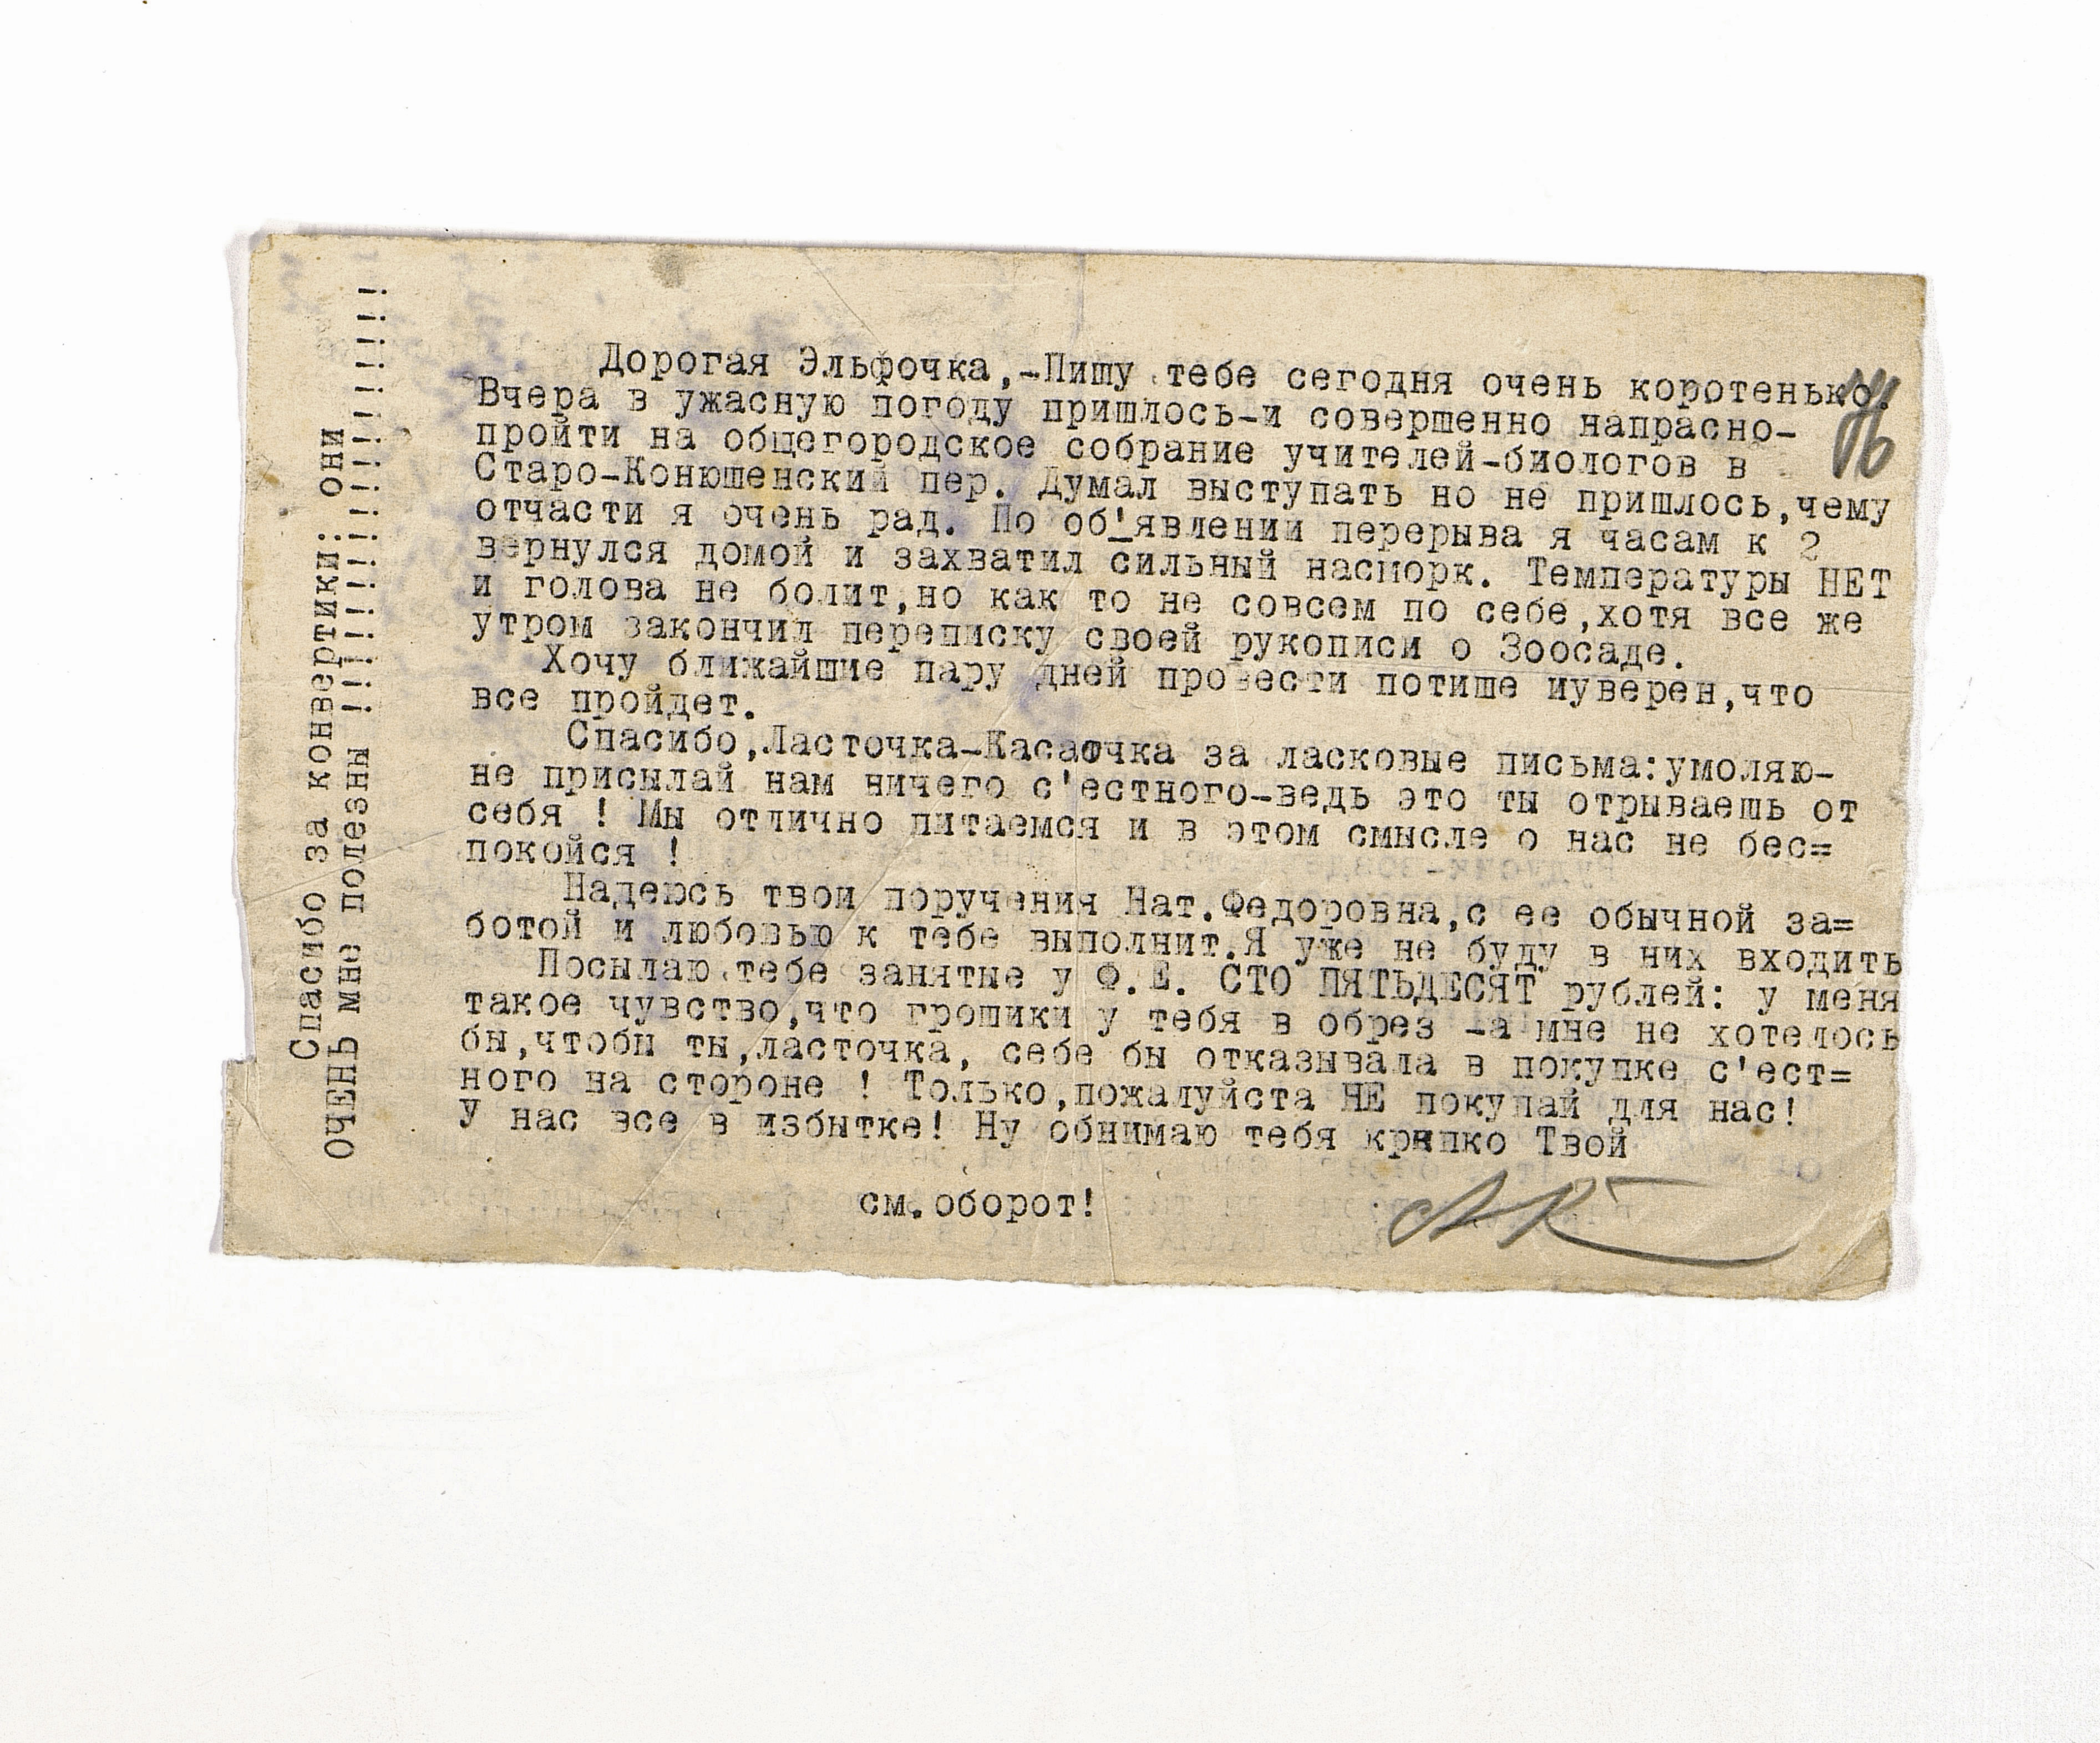 Дорогая Эльфочка,-Пишу тебе сегодня очень коротенько.
Вчера в ужасную погоду пришлось-и совершенно напрасно-
пройти на общегородское собрание учителей-биологов в
Старо-Конюшенский пер. Думал выступать но не пришлось,чему
отчасти я очень рад. По об'явлении перерыва я часам к 2
вернулся домой и захватил сильный насморк. Температуры НЕТ
и голова не болит,но как то не совсем по себе,хотя все же
утром закончил переписку своей рукописи о Зоосаде.
Хочу ближайшие пару дней провести потише иуверен,что
все пройдет.
Спасибо,Ласточка-Касаточка за ласковые письма:умоляю-
не присылай нам ничего с'естного-ведь это ты отрываешь от
себя ! Мы отлично питаемся и в этом смысле о нас не бес=
покойся !
Надеюсь твои поручения Нат.Федоровна,с ее обычной за=
ботой и любовью к тебе выполнит.Я уже не буду в них входить
Посылаю тебе занятые у Ф.Е. СТО ПЯТЬДЕСЯТ рублей: у меня
такое чувство,что грошики у тебя в обрез -а мне не хотелось
бы,чтобы ты,ласточка, себе бы отказывала в покупке с'ест=
ного на стороне ! Только,пожалуйста НЕ покупай для нас!
У нас все в избытке! Ну обнимаю тебя крепко Твой
см.оборот!
АК
Спасибо за конвертики: они
ОЧЕНЬ мне полезны !!!!!!!!!!!!!!!!!